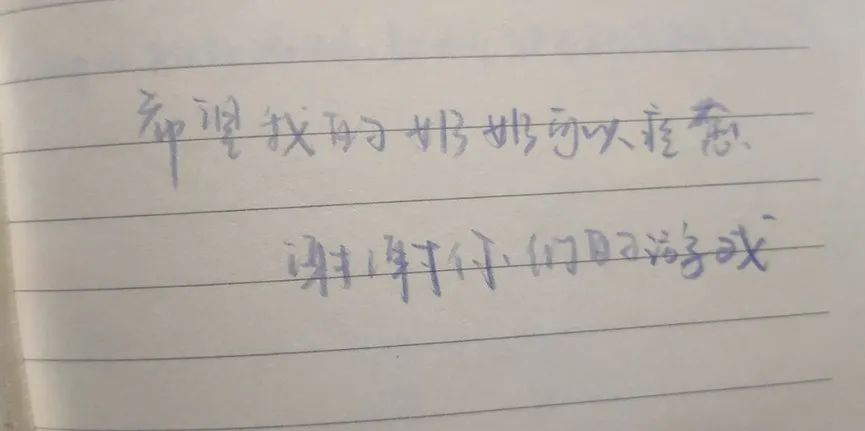 希望我的奶奶可以痊愈
谢谢你们的游戏